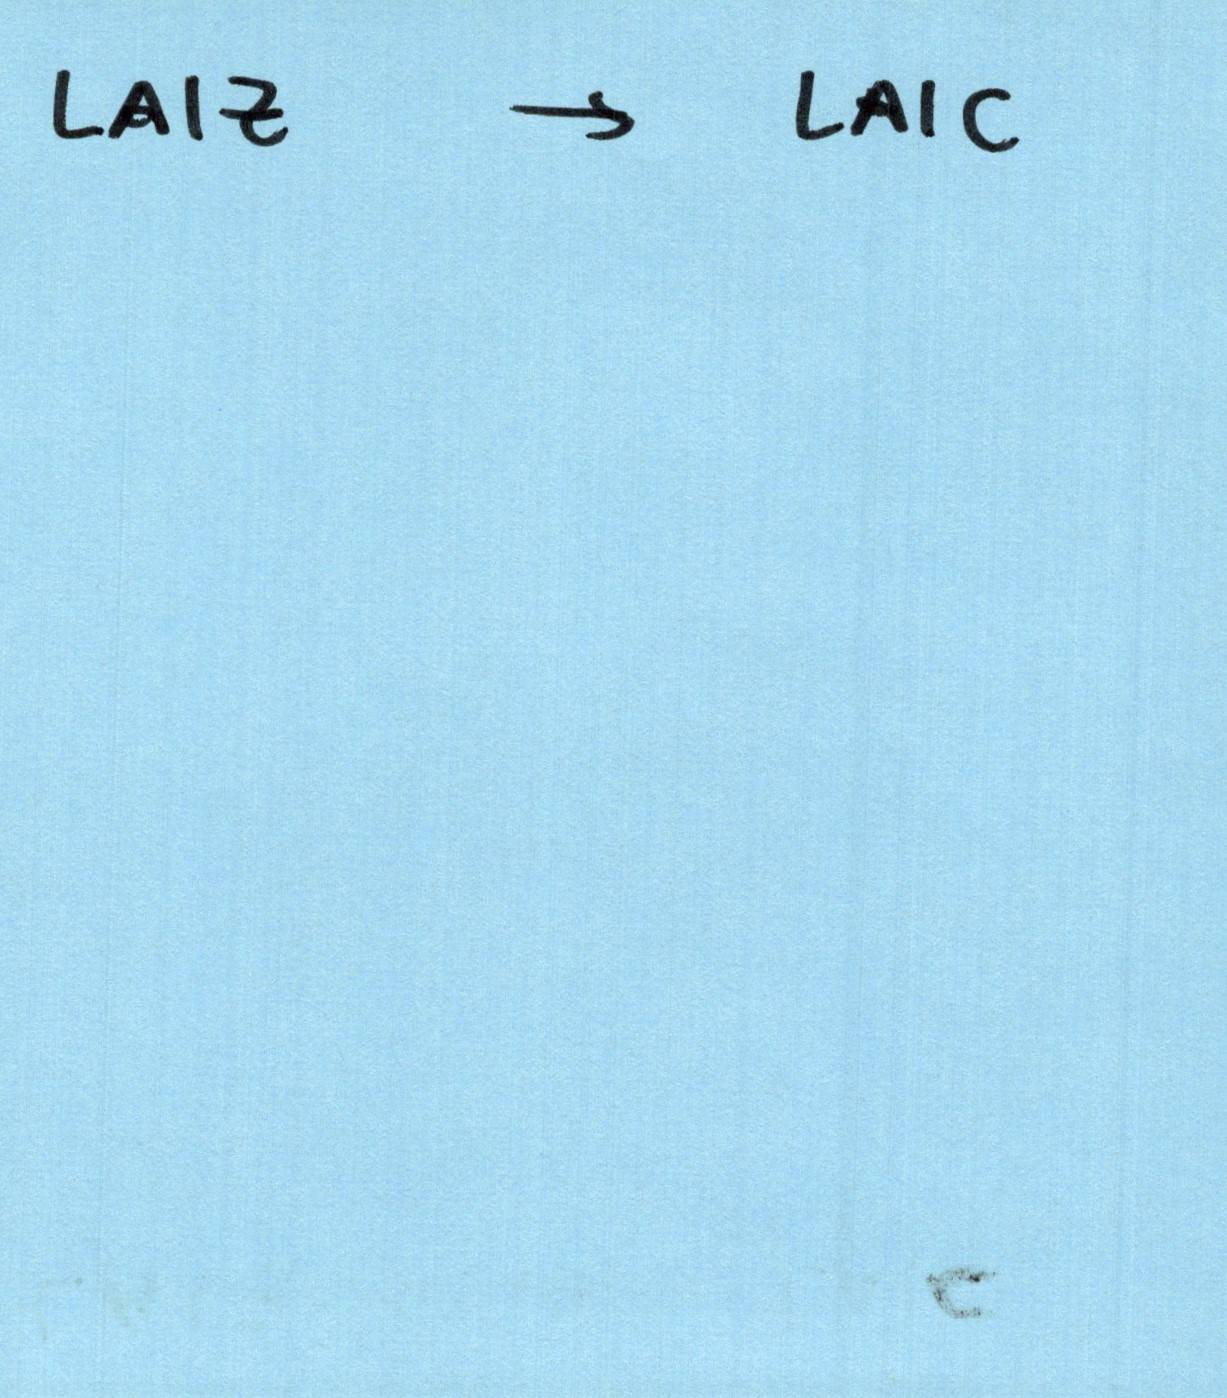 LAIZ → LAIC